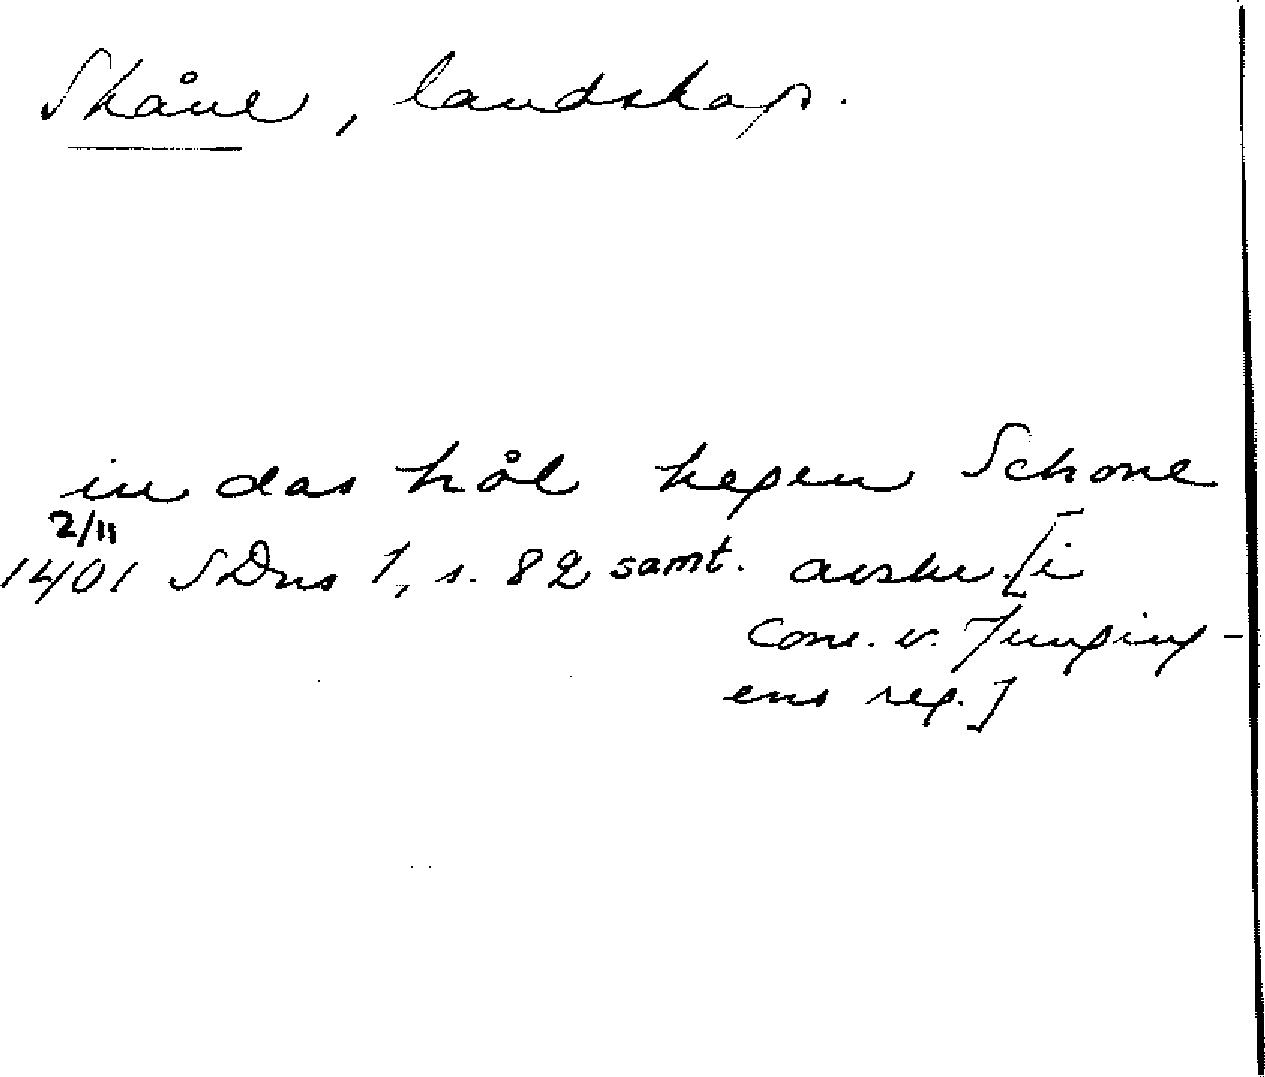 Skåne, landskap.
in das hål kegen Schone
2/11
1401 SDns 1, s. 82 samt. avskr. [i
Conr. v. Junging-
ens reg.]